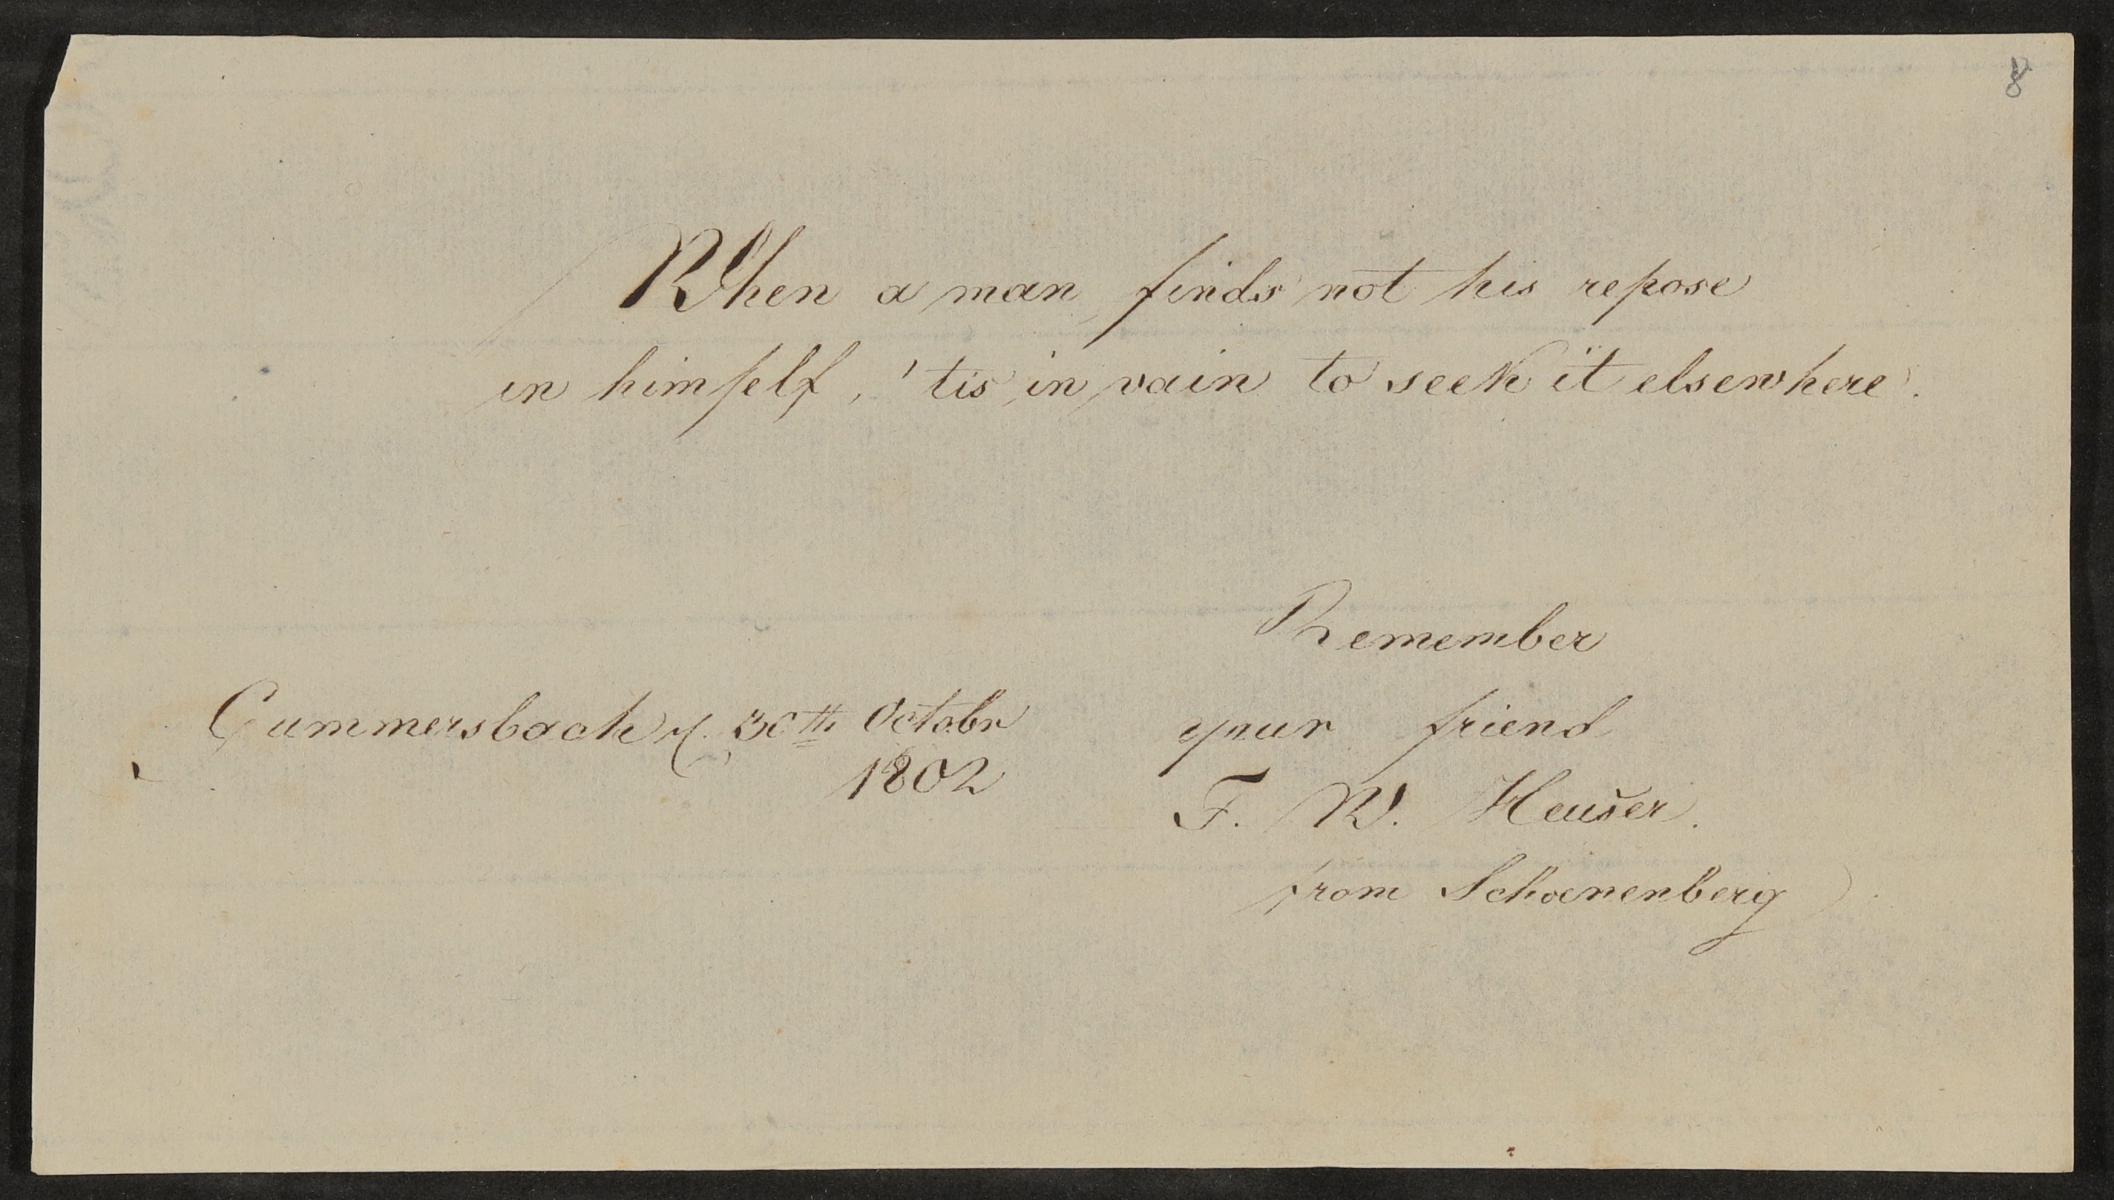 8
When a man finds not his repose
in himſelf, 'tis in vain to seek it elsewhere.
Remember
Gummersbach 30th Octobr
1802
your friend
F. W. Heuser.
from Schoenenberg